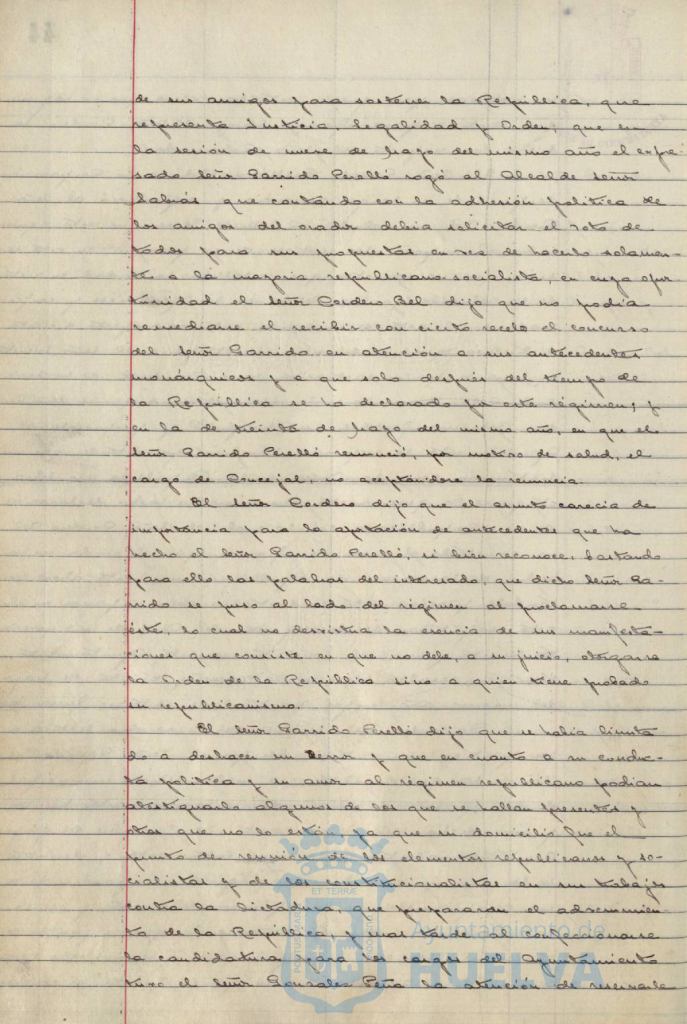 de sus amigos para sostener la República, que
representa Justicia, Legalidad y Orden; que en
la sesión de nueve de Mayo del mismo año el expre-
sado Señor Garrido Perelló rogó al Alcalde Señor
Sabrás que contando con la adhesión política de
los amigos del orador debía solicitar el voto de
todos para sus propuestas en vez de hacerlo solamen-
te a la mayoria republicano-socialista, en cuya opor
tunidad el Señor Cordero Bel dijo que no podía
remediarse el recibir con cierto recelo el concurso
del Señor Garrido en atención a sus antecedentes
monárquicos y a que solo después del tiempo de
la República se ha declarado por este régimen; y
en la de treinta de Mayo del mismo año, en que el
Señor Garrido Perelló renunció, por motivo de salud, el
cargo de Concejal, no aceptándose la renuncia.
El Señor Cordero dijo que el asunto carecia de
importancia para la aportación de antecedentes que ha
hecho el Señor Garrido Perelló, si bien reconoce, bastando
para ello las palabras del interesado, que dicho Señor Ga-
rrido se puso al lado del régimen al proclamarse
éste, lo cual no desvirtua la esencia de sus manifesta-
ciones que consiste en que no debe, a su juicio, otorgarse
la Orden de la República sino a quien tiene probado
su republicanismo.
El Señor Garrido Perelló dijo que se habia limita
do a deshacer un error y que en cuanto a su conduc-
ta política y su amor al régimen republicano podian
atestiguarlo algunos de los que se hallan presentes y
otros que no lo están, ya que su domicilio fue el
punto de reunión de los elementos republicanos y so-
cialistas y de los constitucionalistas en sus trabajos
contra la dictadura, que prepararon el advenimien-
to de la República, y mas tarde al confeccionarse
la candidatura para los cargos del Ayuntamiento
tuvo el Señor Gonzalez Peña la atención de reservarle
Ayuntamiento de
HUELVA